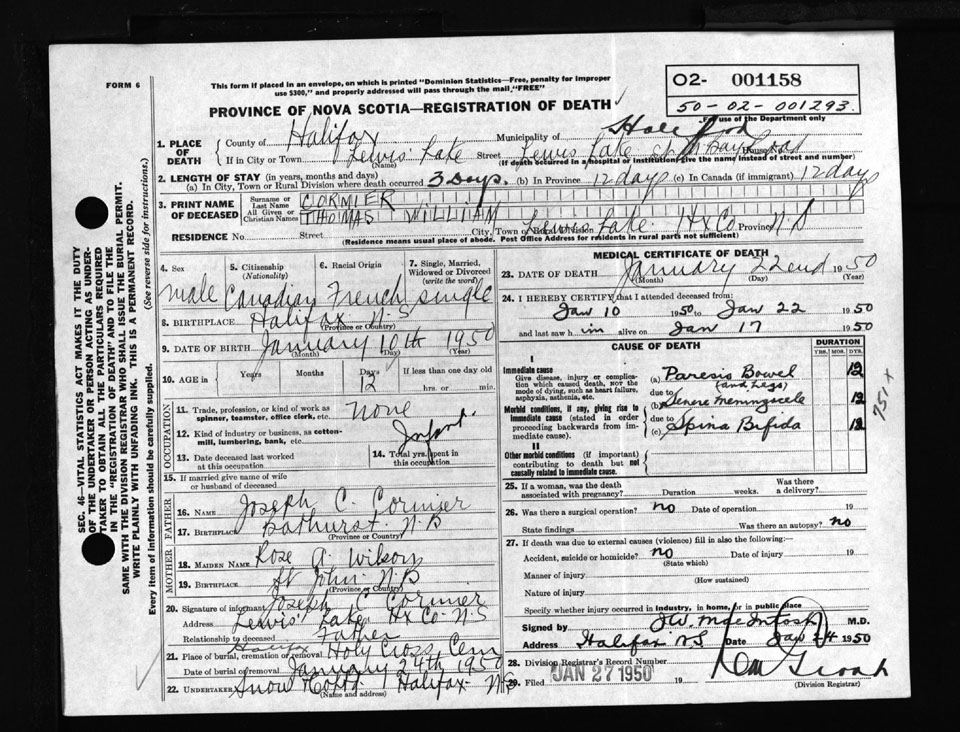 FORM 6
This form if placed in an envelope, on which is printed "Dominion Statistics—Free, penalty for improper
use $300," and properly addressed will pass through the mail "FREE"
O2- 001158
50-02-001293.
For use of the Department only
PROVINCE OF NOVA SCOTIA—REGISTRATION OF DEATH
1. PLACE OF DEATH
County of Halifax Municipality of Halifax
If in City or Town Lewis' Lake Street Lewis Lake House No.
(Name) (If death occurred in a hospital or institution give the name instead of street and number)
2. LENGTH OF STAY (in years, months and days)
(a) In City, Town or Rural Division where death occurred 3 Days. (b) In Province 12 days (c) In Canada (if immigrant) 12 days
3. PRINT NAME OF DECEASED
Surname or Last Name CORMIER
All Given or Christian Names THOMAS WILLIAM
RESIDENCE No. Street City, Town or Lewis Lake Hx Co Province N S
(Residence means usual place of abode. Post Office Address for residents in rural parts not sufficient)
4. Sex 5. Citizenship (Nationality) 6. Racial Origin 7. Single, Married, Widowed or Divorced (write the word)
Male Canadian French single
8. BIRTHPLACE Halifax N.S
(Province or Country)
9. DATE OF BIRTH January 10th 1950
(Month) (Day) (Year)
10. AGE in Years Months Days 12 If less than one day old
hrs. or min.
OCCUPATION
11. Trade, profession, or kind of work as spinner, teamster, office clerk, etc. None
12. Kind of industry or business, as cotton-mill, lumbering, bank, etc. Infant
13. Date deceased last worked at this occupation
14. Total yrs. spent in this occupation
15. If married give name of wife or husband of deceased
FATHER
16. NAME Joseph C. Cormier
17. BIRTHPLACE Bathurst. N.B
(Province or Country)
MOTHER
18. MAIDEN NAME Rose A. Wilson
19. BIRTHPLACE St John N.B
(Province or Country)
20. Signature of informant Joseph C Cormier
Address Lewis' Lake Hx Co. N.S
Relationship to deceased Father
21. Place of burial, cremation or removal Halifax Holy Cross Cem
Date of burial or removal January 24th 1950
22. Undertaker Snow & Co Ltd Halifax N.S
(Name and address)
MEDICAL CERTIFICATE OF DEATH
23. DATE OF DEATH January 22end 1950
(Month) (Day) (Year)
24. I HEREBY CERTIFY that I attended deceased from:
Jan 10 1950 to Jan 22 1950
and last saw him alive on Jan 17 1950
CAUSE OF DEATH DURATION
YRS. MOS. DYS.
I
Immediate cause
Give disease, injury or complication which caused death, NOT the mode of dying, such as heart failure, asphyxia, asthenia, etc.
(a) Paresis Bowel (and Legs) 12
due to
Morbid conditions, if any, giving rise to immediate cause (stated in order proceeding backwards from immediate cause).
(b) Severe Meningocele 12
due to
(c) Spina Bifida 12
II
Other morbid conditions (if important) contributing to death but not causally related to immediate cause.
751 x
25. If a woman, was the death associated with pregnancy? Duration weeks. Was there a delivery?
26. Was there a surgical operation? no Date of operation 19
State findings Was there an autopsy? no
27. If death was due to external causes (violence) fill in also the following:—
Accident, suicide or homicide? no Date of injury 19
(State which)
Manner of injury
(How sustained)
Nature of injury
Specify whether injury occurred in industry, in home, or in public place
Signed by J.W. MacIntosh M.D.
Address Halifax N.S. Date Jan 24 1950
28. Division Registrar's Record Number
29. Filed JAN 27 1950 19
(Division Registrar)
SEC. 46—VITAL STATISTICS ACT MAKES IT THE DUTY
OF THE UNDERTAKER OR PERSON ACTING AS UNDER-
TAKER TO OBTAIN ALL THE PARTICULARS REQUIRED
IN THE "REGISTRATION OF DEATH" AND TO FILE THE
SAME WITH THE DIVISION REGISTRAR WHO SHALL ISSUE THE BURIAL PERMIT.
WRITE PLAINLY WITH UNFADING INK. THIS IS A PERMANENT RECORD.
Every item of information should be carefully supplied. (See reverse side for instructions.)